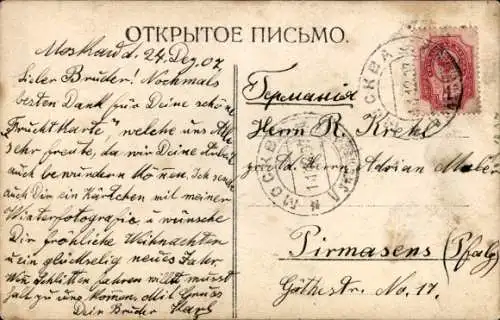 ОТКРЫТОЕ ПИСЬМО.
Moskau d. 24. Dez. 07
Lieber Bruder! Nochmals
besten Dank für Deine schöne
"Fruchtkarte", welche uns Alle
sehr freute, da wir Deine Arbeit
auch bewundern können. Ich sende
auch Dir ein Kärtchen mit meiner
Winterfotografie u wünsche
Dir fröhliche Weihnachten
u ein glückselig neues Jahr
Wen Schlitten fahren willst musst
halt zu uns komen. Mit Gruss
Dein Bruder Karl
Германія
Herrn R. Krehl
Herrn Adrian
Pirmasens (Pfalz)
Göthestr. No. 17.
МОСКВА
МОСКВА